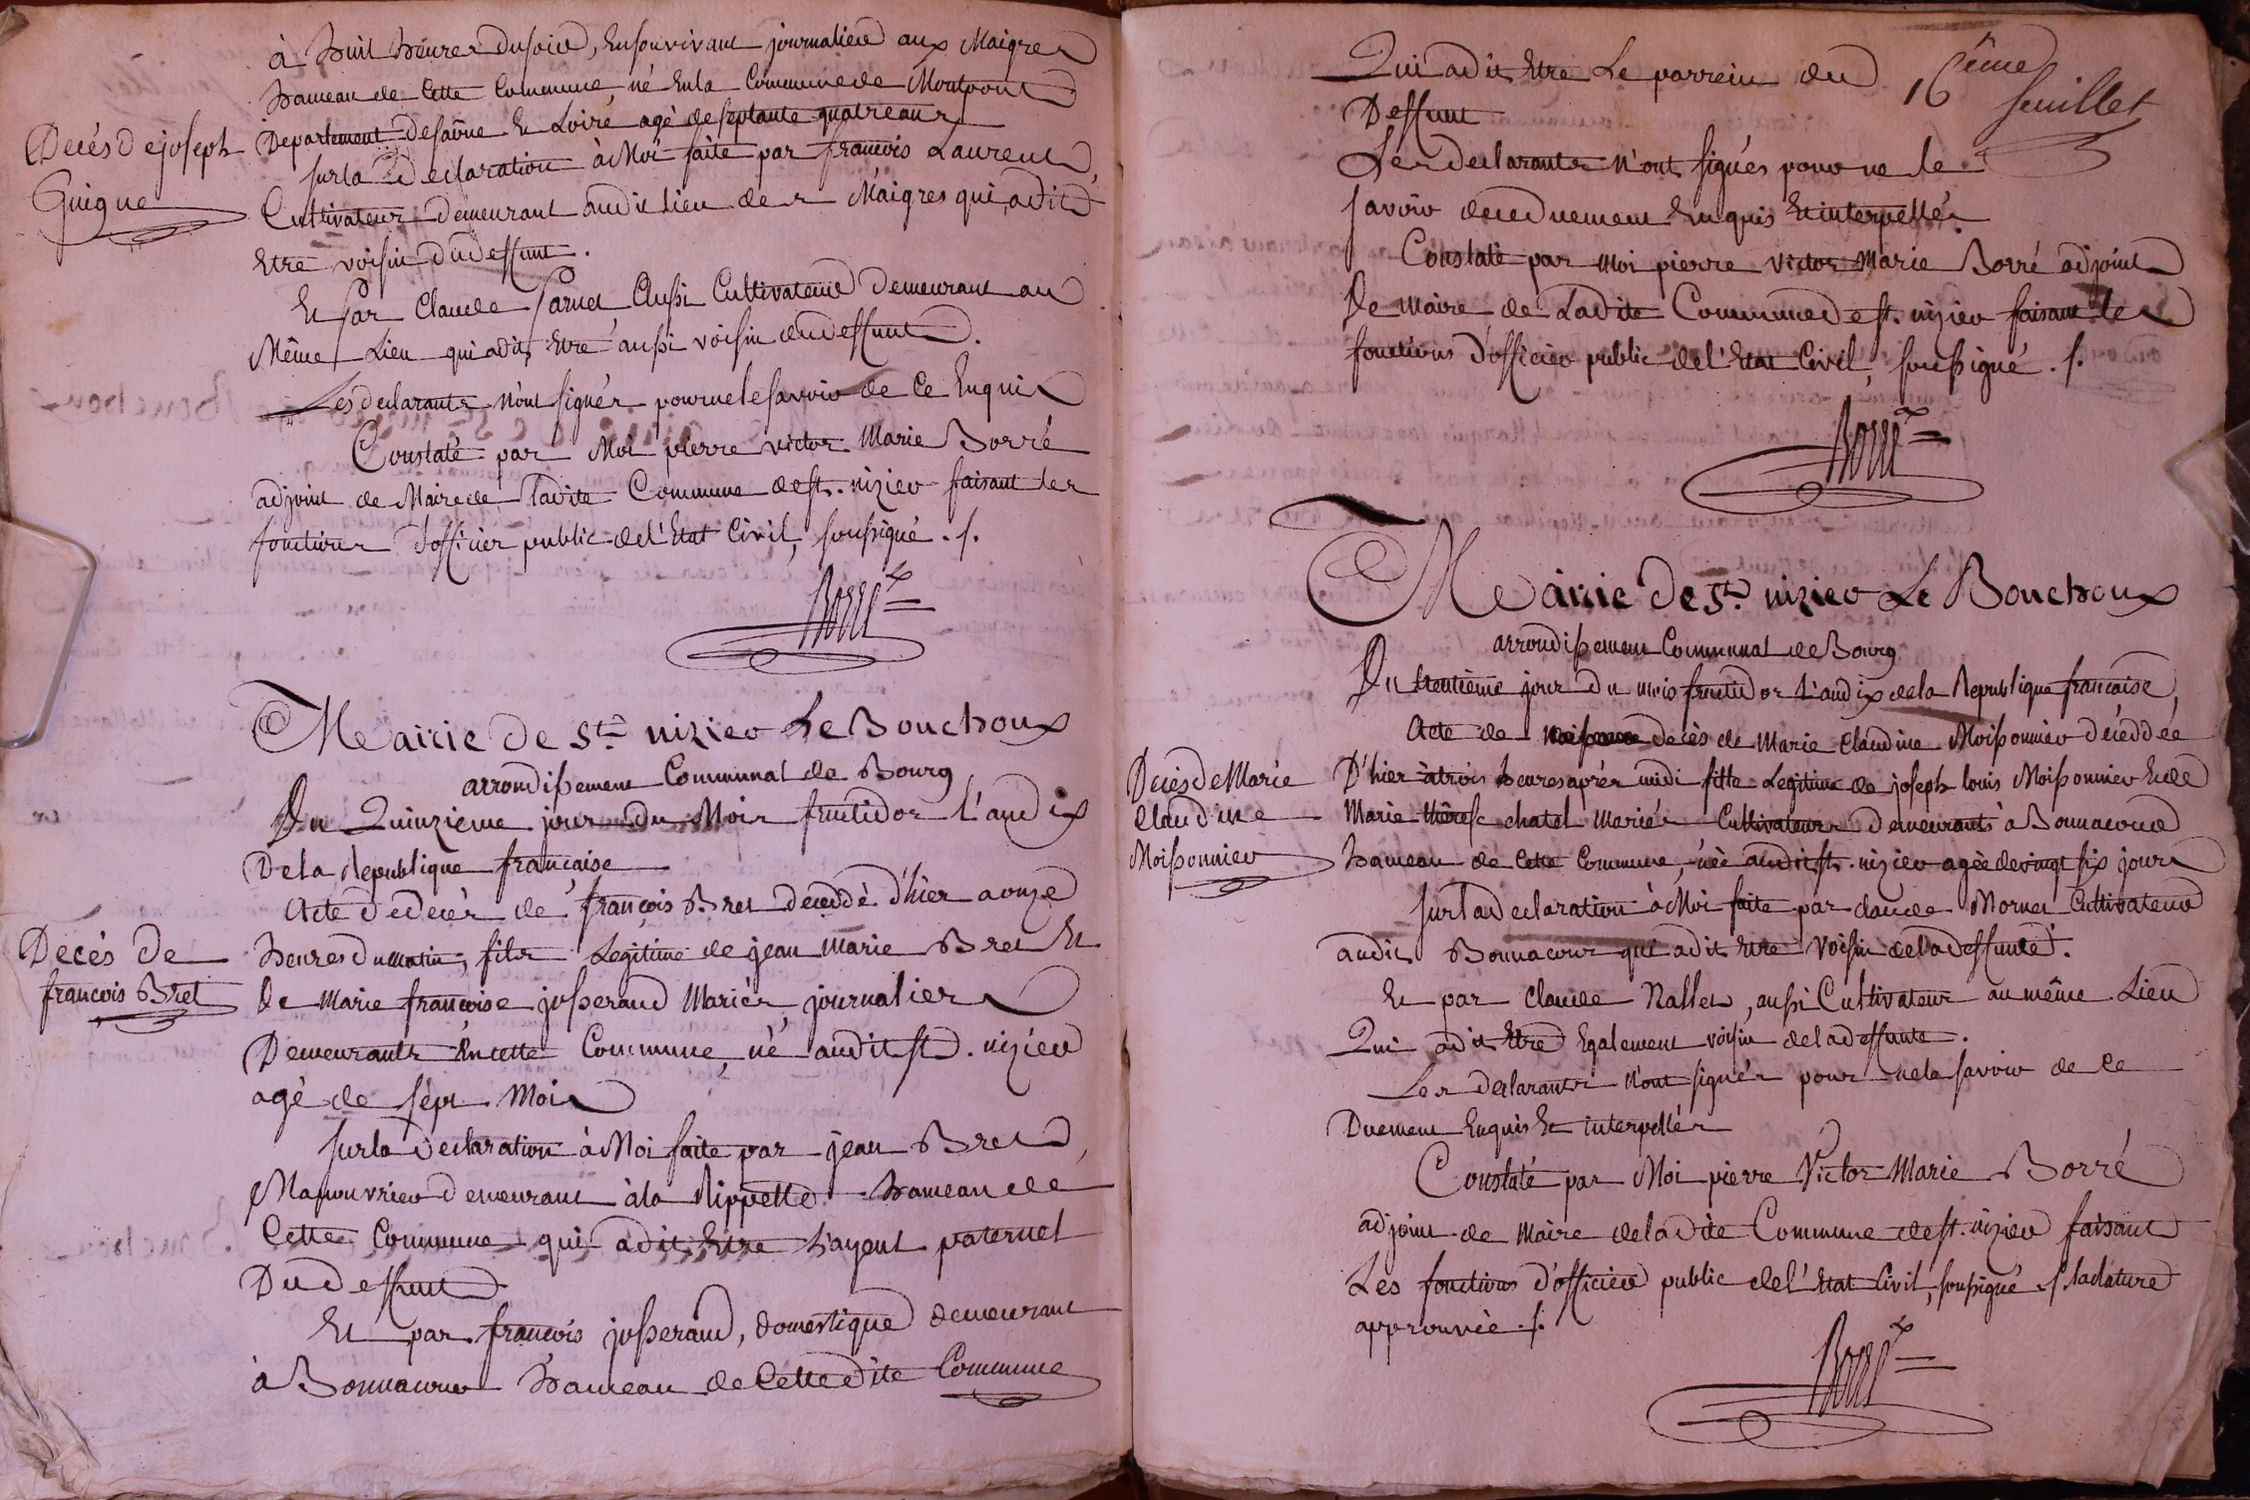 à huit heures du soird, En son vivant journalierd aux Maigres
hameau de Cette Commune né En la Commune de Montpont
Departement de saône Et Loire agé de septante quatre ans
Decés de joseph
Guigue
sur la declaration à Moi faite par francois Laurent
Cultivateur demeurant audit Lieu des Maigres qui a dit
Etre voisin du deffunt.
Et Par Claude Aussi Cultivateur Demeurant au
Même Lieu qui a dit Etre aussi voisin du deffunt.
Les declarants n'ont signés pour ne le savoir de Ce Enquis
Constaté par Moi pierre victor Marie Borré
adjoint de Maire de Ladite Commune de st. nizier faisant les
fonctions d'officier public de l'Etat Civil, soussigné . /.
Borré
Mairie de st. nizier Le Bouchoux
arrondissement Communal de Bourg
Du Quinzieme jour du Mois fructidor L'an dix
De la Republique francaise
Acte de decés de françois Bret decedé d'hier a onze
Decés de
francois Bret
heures du matin, fils Legitime de jean marie Bret Et
de Marie françoise josserand Mariés, journaliers
Demeurants En cette Commune, né audit st. nizier
agé de sept Mois
sur la declaration à Moi faite par jean Bret,
Manouvrier demeurant à la Rippette hameau de
Cette Commune qui a dit Etre L'ayeul paternel
Du deffunt
Et par francois josserand, domestique demeurant
à Bonnacour hameau de Cette dite Commune
16ême
feuillet
Qui a dit Etre Le parrein du
Deffunt
Les declarants n'ont signés pour ne le
savoir de ce duement Enquis Et interpellés
Constaté par Moi pierre victor Marie Borré adjoint
De Maire de Ladite Commune de st. nizier faisant les
fonctions d'officier public de l'Etat Civil, soussigné . /.
Borré
Mairie de st. nizier Le Bouchoux
arrondissement Communal de Bourg
Du trentieme jour du mois fructidor L'an dix de la Republique francaise,
Acte de decés de Marie Claudine Moissonnier decedée
Decés de Marie
Claudine
Moissonnier
D'hier à trois heures aprés midi fille Legitime de joseph louis Moissonnier Et de
Marie thérese chatel Mariés Cultivateurs Demeurants à Bonnacour
hameau de Cette Commune, née audit st. nizier agée de vingt six jours
sur la declaration à Moi faite par claude Mornet Cultivateur
audit Bonnacour qui a dit Etre voisin de la deffunte.
Et par Claude Nallet, aussi Cultivateur au même Lieu
Qui a dit Etre Egalement voisin de la deffunte.
Les declarants n'ont signés pour ne le savoir de ce
Duement Enquis Et interpellés
Constaté par Moi pierre Victor Marie Borré
adjoint de Maire de Ladite Commune de st. nizier faisant
Les fonctions d'officier public de l'Etat Civil, soussigné ./. la dature
approuvée ./.
Borré